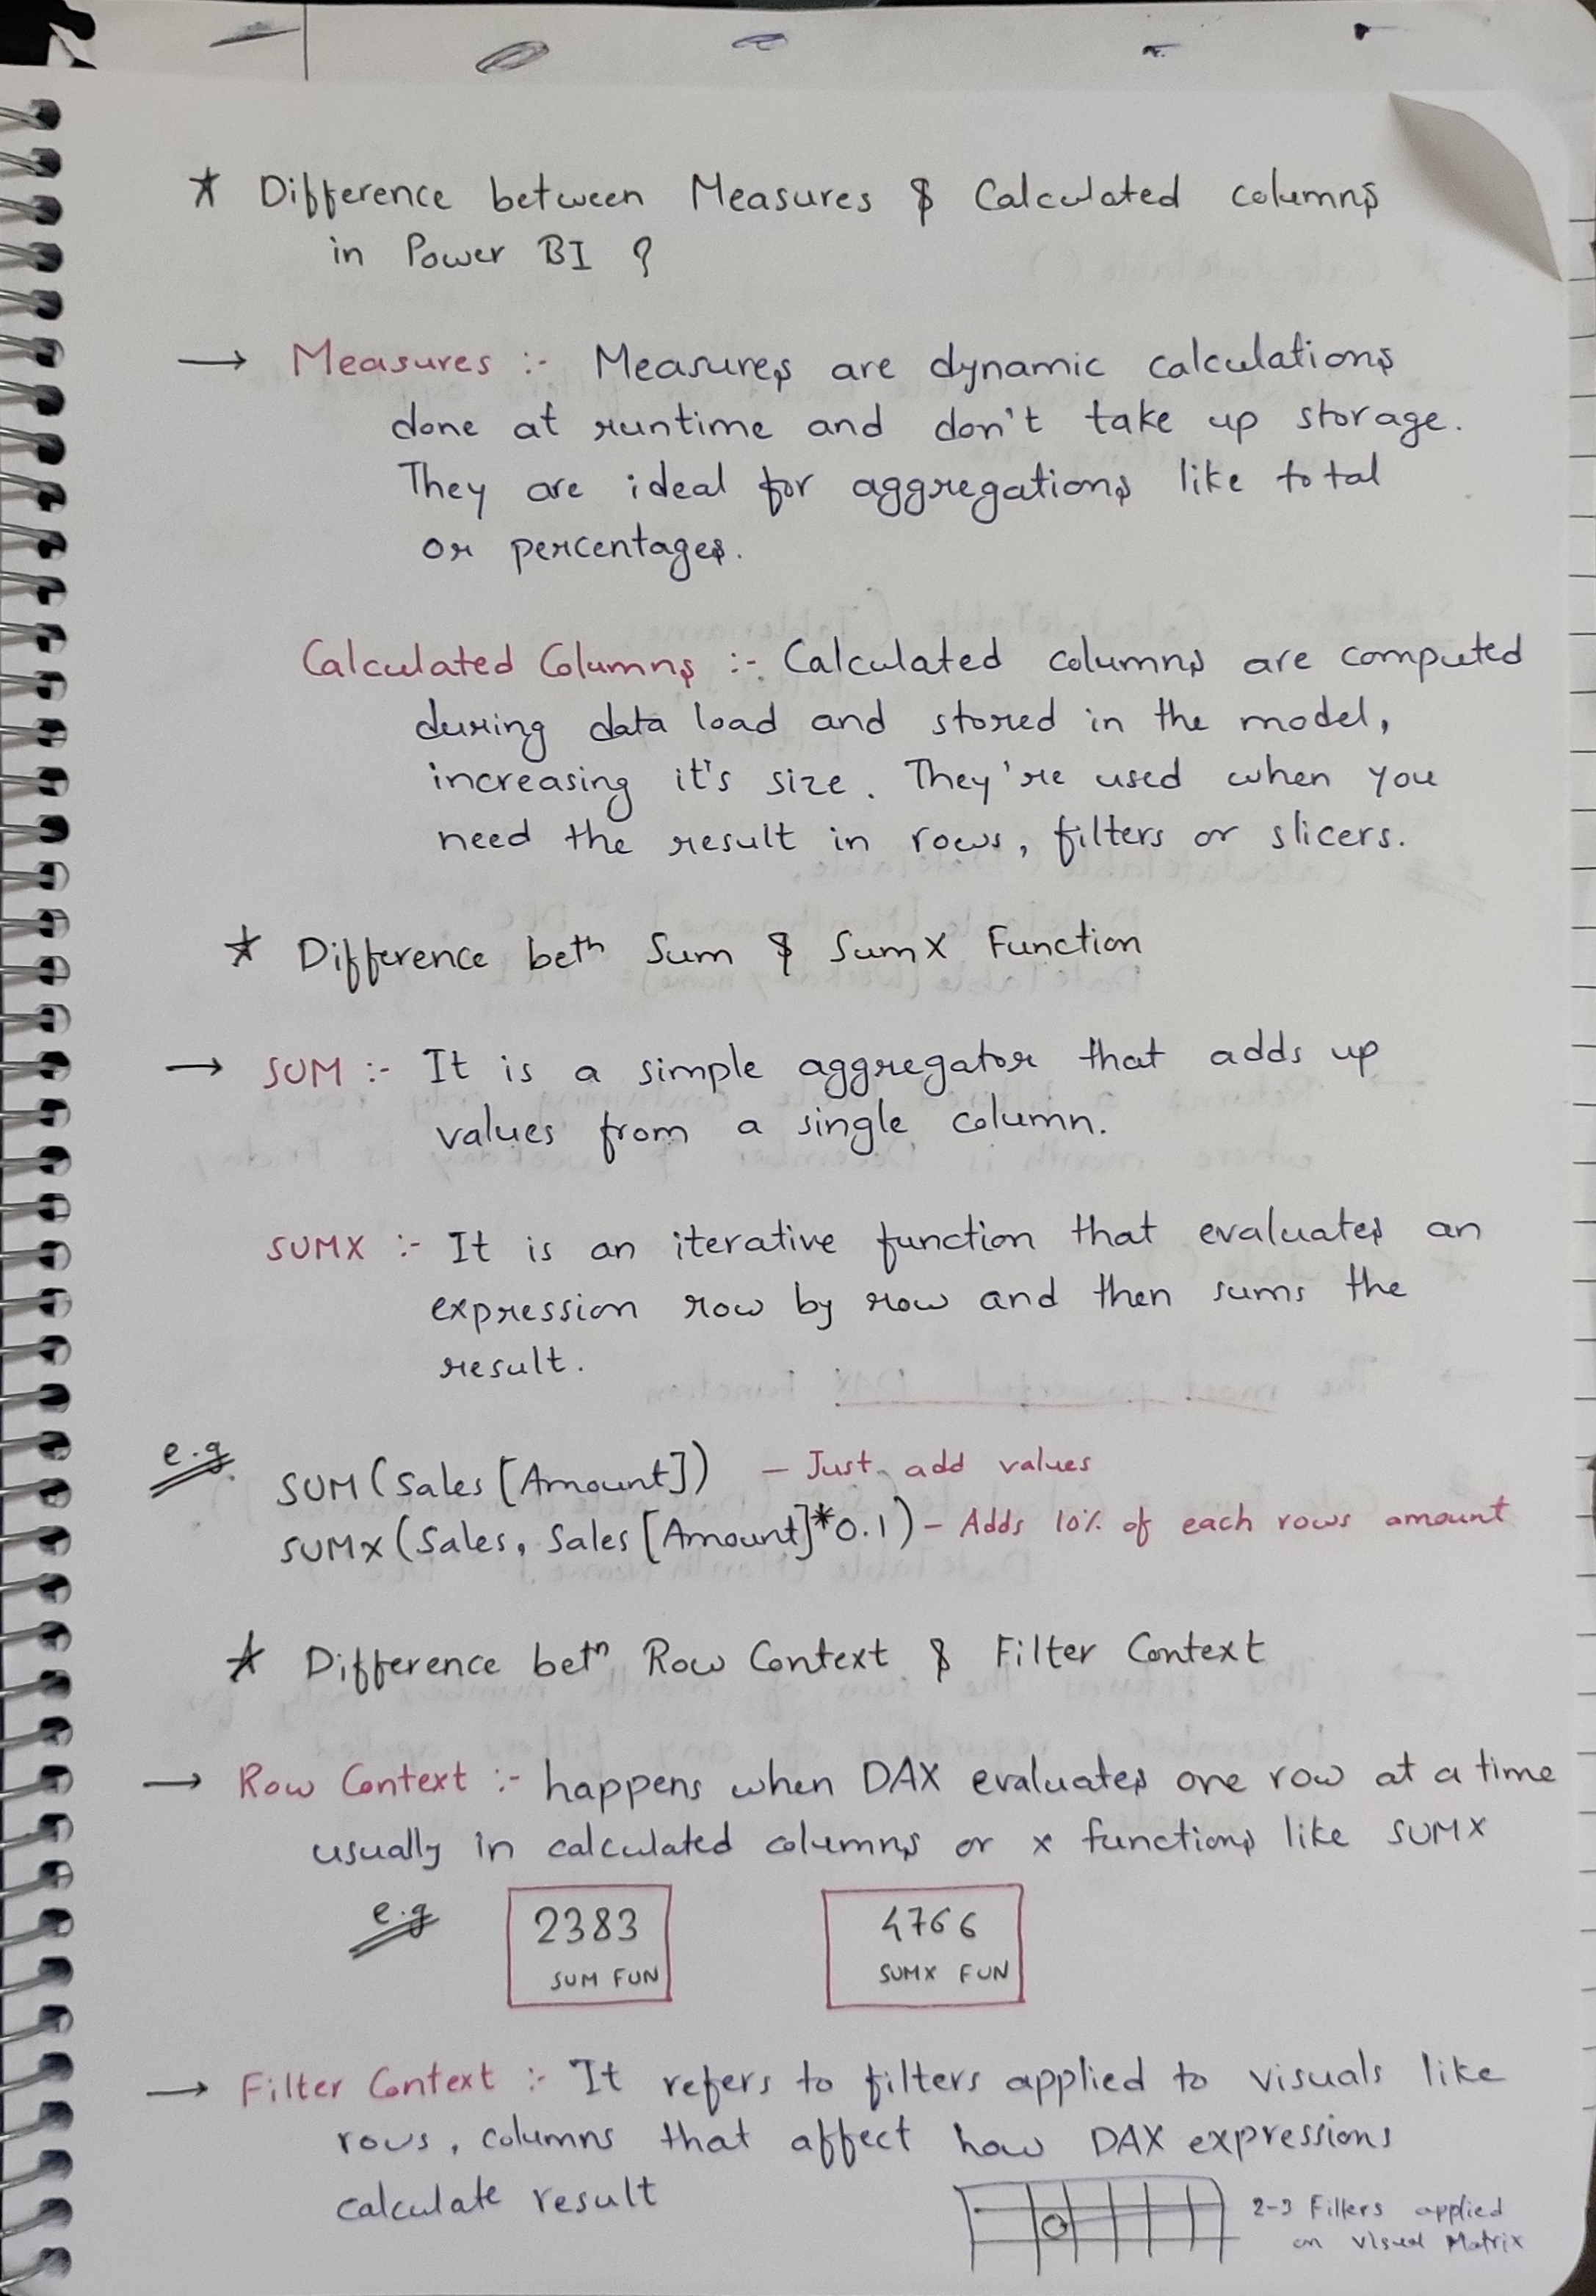 * Difference between Measures & Calculated columns
in Power BI ?
→ Measures :- Measures are dynamic calculations
done at runtime and don't take up storage.
They are ideal for aggregations like total
or percentages.
Calculated Columns :- Calculated columns are computed
during data load and stored in the model,
increasing it's size. They're used when you
need the result in rows, filters or slicers.
* Difference betn Sum & SumX Function
→ SUM :- It is a simple aggregator that adds up
values from a single column.
SUMX :- It is an iterative function that evaluates an
expression row by row and then sums the
result.
e.g. SUM(Sales[Amount]) - Just add values
SUMX(Sales, Sales[Amount]*0.1) - Adds 10% of each rows amount
* Difference betn Row Context & Filter Context
→ Row Context :- happens when DAX evaluates one row at a time
usually in calculated columns or x functions like SUMX
e.g 2383 4766
SUM FUN SUMX FUN
→ Filter Context :- It refers to filters applied to visuals like
rows, columns that affect how DAX expressions
calculate result
2-3 Filters applied
on visual Matrix